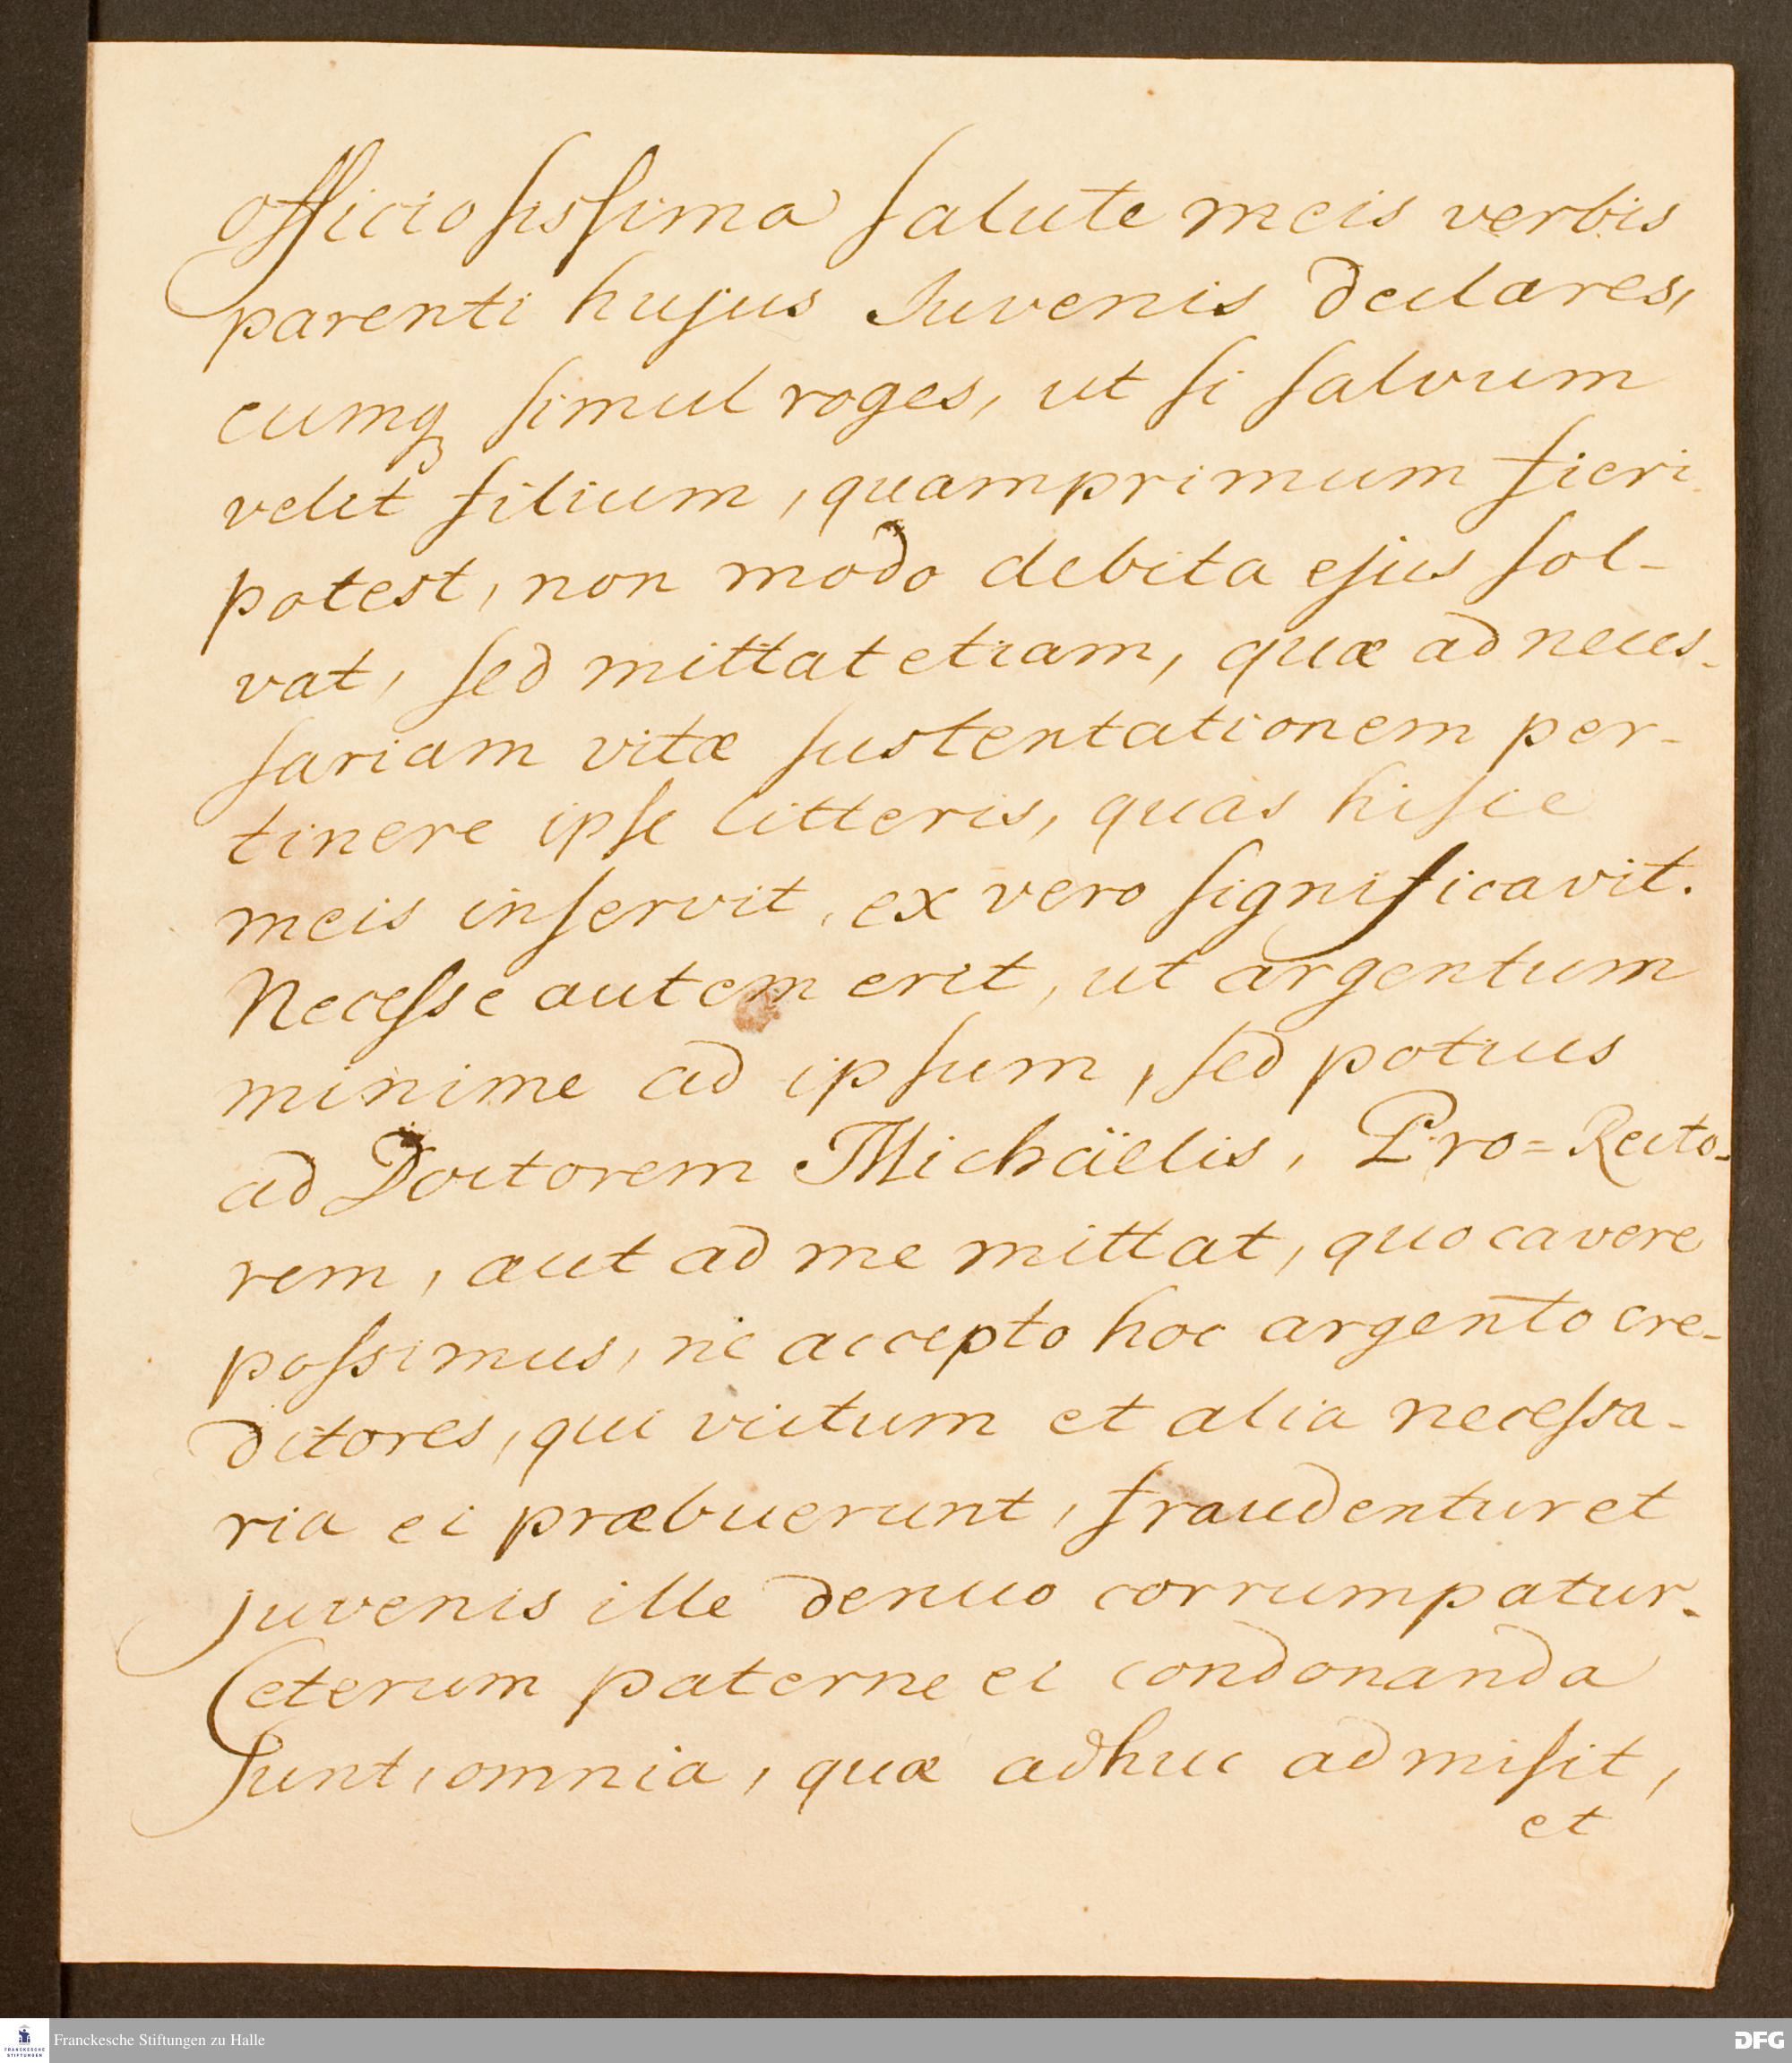 officiosissima salute meis verbis
parenti hujus Iuvenis declares,
eumq simul roges, ut si salvum
velit filium, quamprimum fieri
potest, non modo debita ejus sol-
vat, sed mittat etiam, quæ ad neces-
sariam vitæ sustentationem per-
tinere ipse litteris, quas hisce
meis inservit, ex vero significavit.
Necesse autem erit, ut argentum
minime ad ipsum, sed potius
ad Doctorem Michäelis, Pro=Recto-
rem, aut ad me mittat, quo cavere
possimus, ne accepto hoc argento cre-
ditores, qui victum et alia necessa-
ria ei præbuerunt, fraudentur et
juvenis ille denuo corrumpatur.
Ceterum paterne ei condonanda
sunt, omnia, quæ adhuc admisit,
et
FRANCKESCHE
STIFTUNGEN
Franckesche Stiftungen zu Halle
DFG